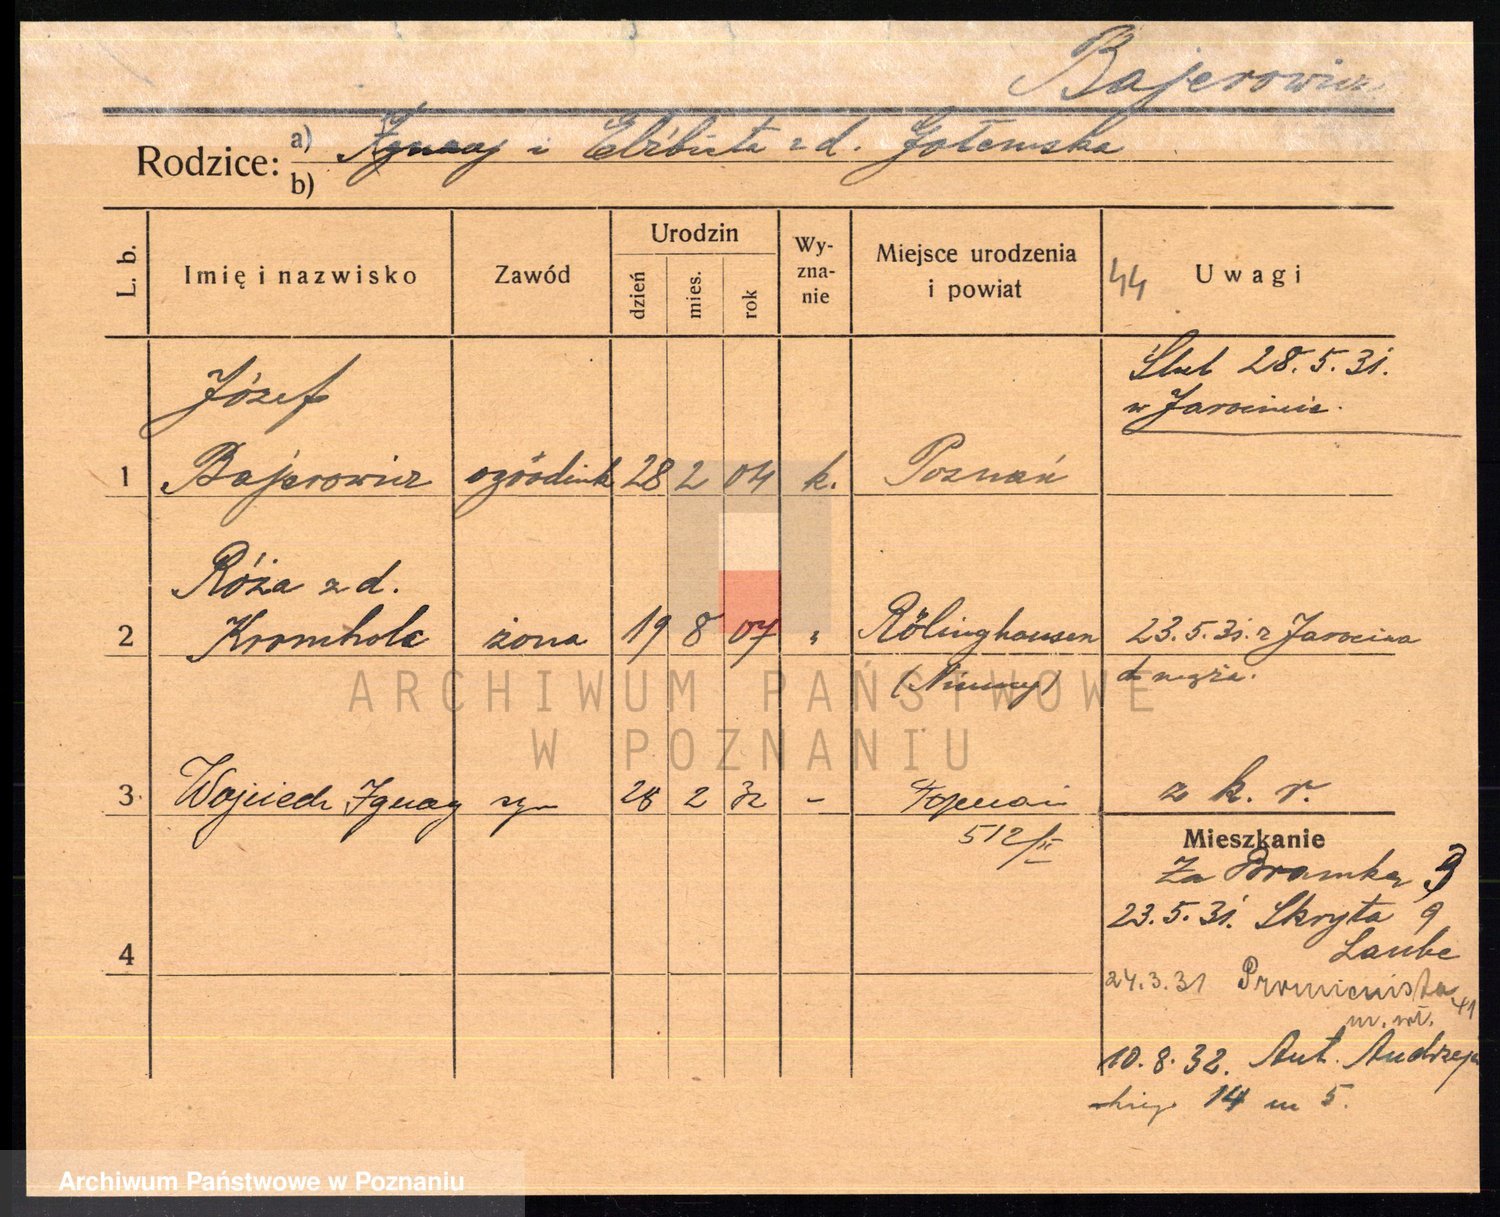 Bajerowicz
Rodzice: a) Ignacy i Elżbieta z d. Gołemska
b)
L. b.
Imię i nazwisko
Zawód
Urodzin
dzień
mies.
rok
Wy-
zna-
nie
Miejsce urodzenia
i powiat
44 Uwagi
Józef
Ślub 28.5.31.
w Jarocinie.
1 Bajerowicz ogrodnik 28 2 04 k. Poznań
Róża z d.
2 Kromholc żona 19 8 07 " Rölinghausen 23.5.31. z Jarocina
(Niemcy) do męża.
3 Wojciech Ignacy syn 28 2 32 - Poznań z k. r.
512/II
Mieszkanie
Za Bramką 3
23.5.31. Skryta 9
Laube
4
24.3.31 Promienista 41
10.8.32. Ant. Andrzejew
skiego 14 m 5.
ARCHIWUM PAŃSTWOWE
W POZNANIU
Archiwum Państwowe w Poznaniu